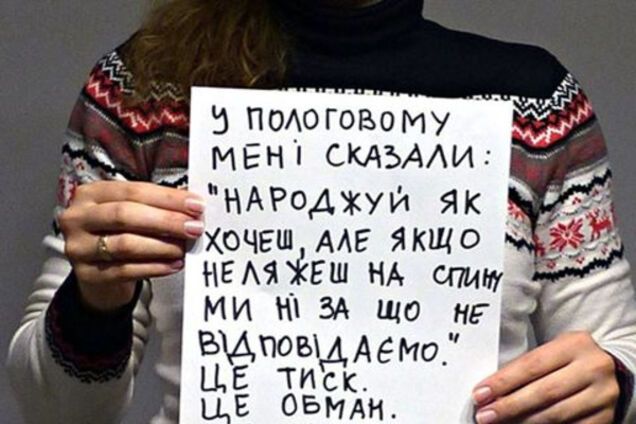 У ПОЛОГОВОМУ
МЕНІ СКАЗАЛИ:
"НАРОДЖУЙ ЯК
ХОЧЕШ, АЛЕ ЯКЩО
НЕ ЛЯЖЕШ НА СПИНУ
МИ НІ ЗА ЩО НЕ
ВІДПОВІДАЄМО."
ЦЕ ТИСК.
ЦЕ ОБМАН.